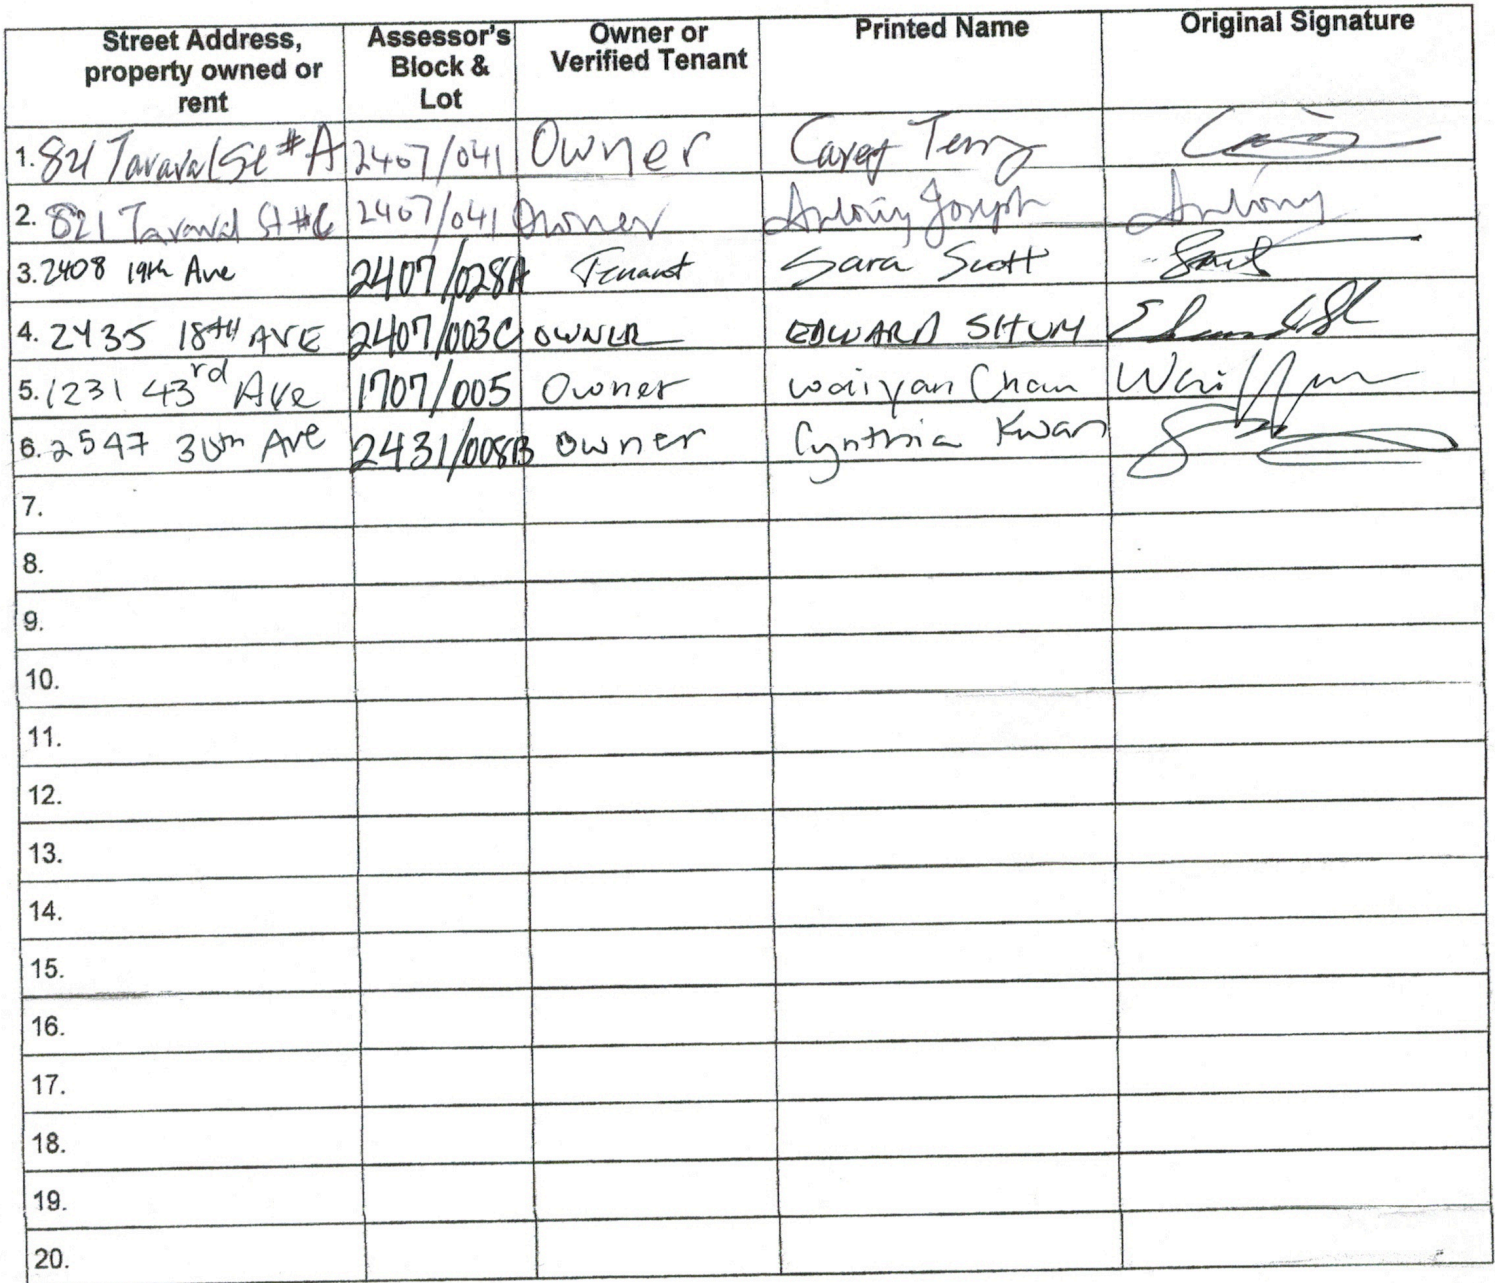 Street Address, property owned or rent Assessor's Block & Lot Owner or Verified Tenant Printed Name Original Signature
1. 821 Taraval St #A 2407/041 Owner Carey Terry
2. 821 Taraval St #C 2407/041 Owner Antony Joseph Antony
3. 2408 19th Ave 2407/028A Tenant Sara Scott
4. 2435 18TH AVE 2407/003C OWNER EDWARD SHUM
5. 1231 43rd Ave 1707/005 Owner waiyan Chan
6. 2547 30th Ave 2431/008B Owner Cynthia Kwan
7.
8.
9.
10.
11.
12.
13.
14.
15.
16.
17.
18.
19.
20.